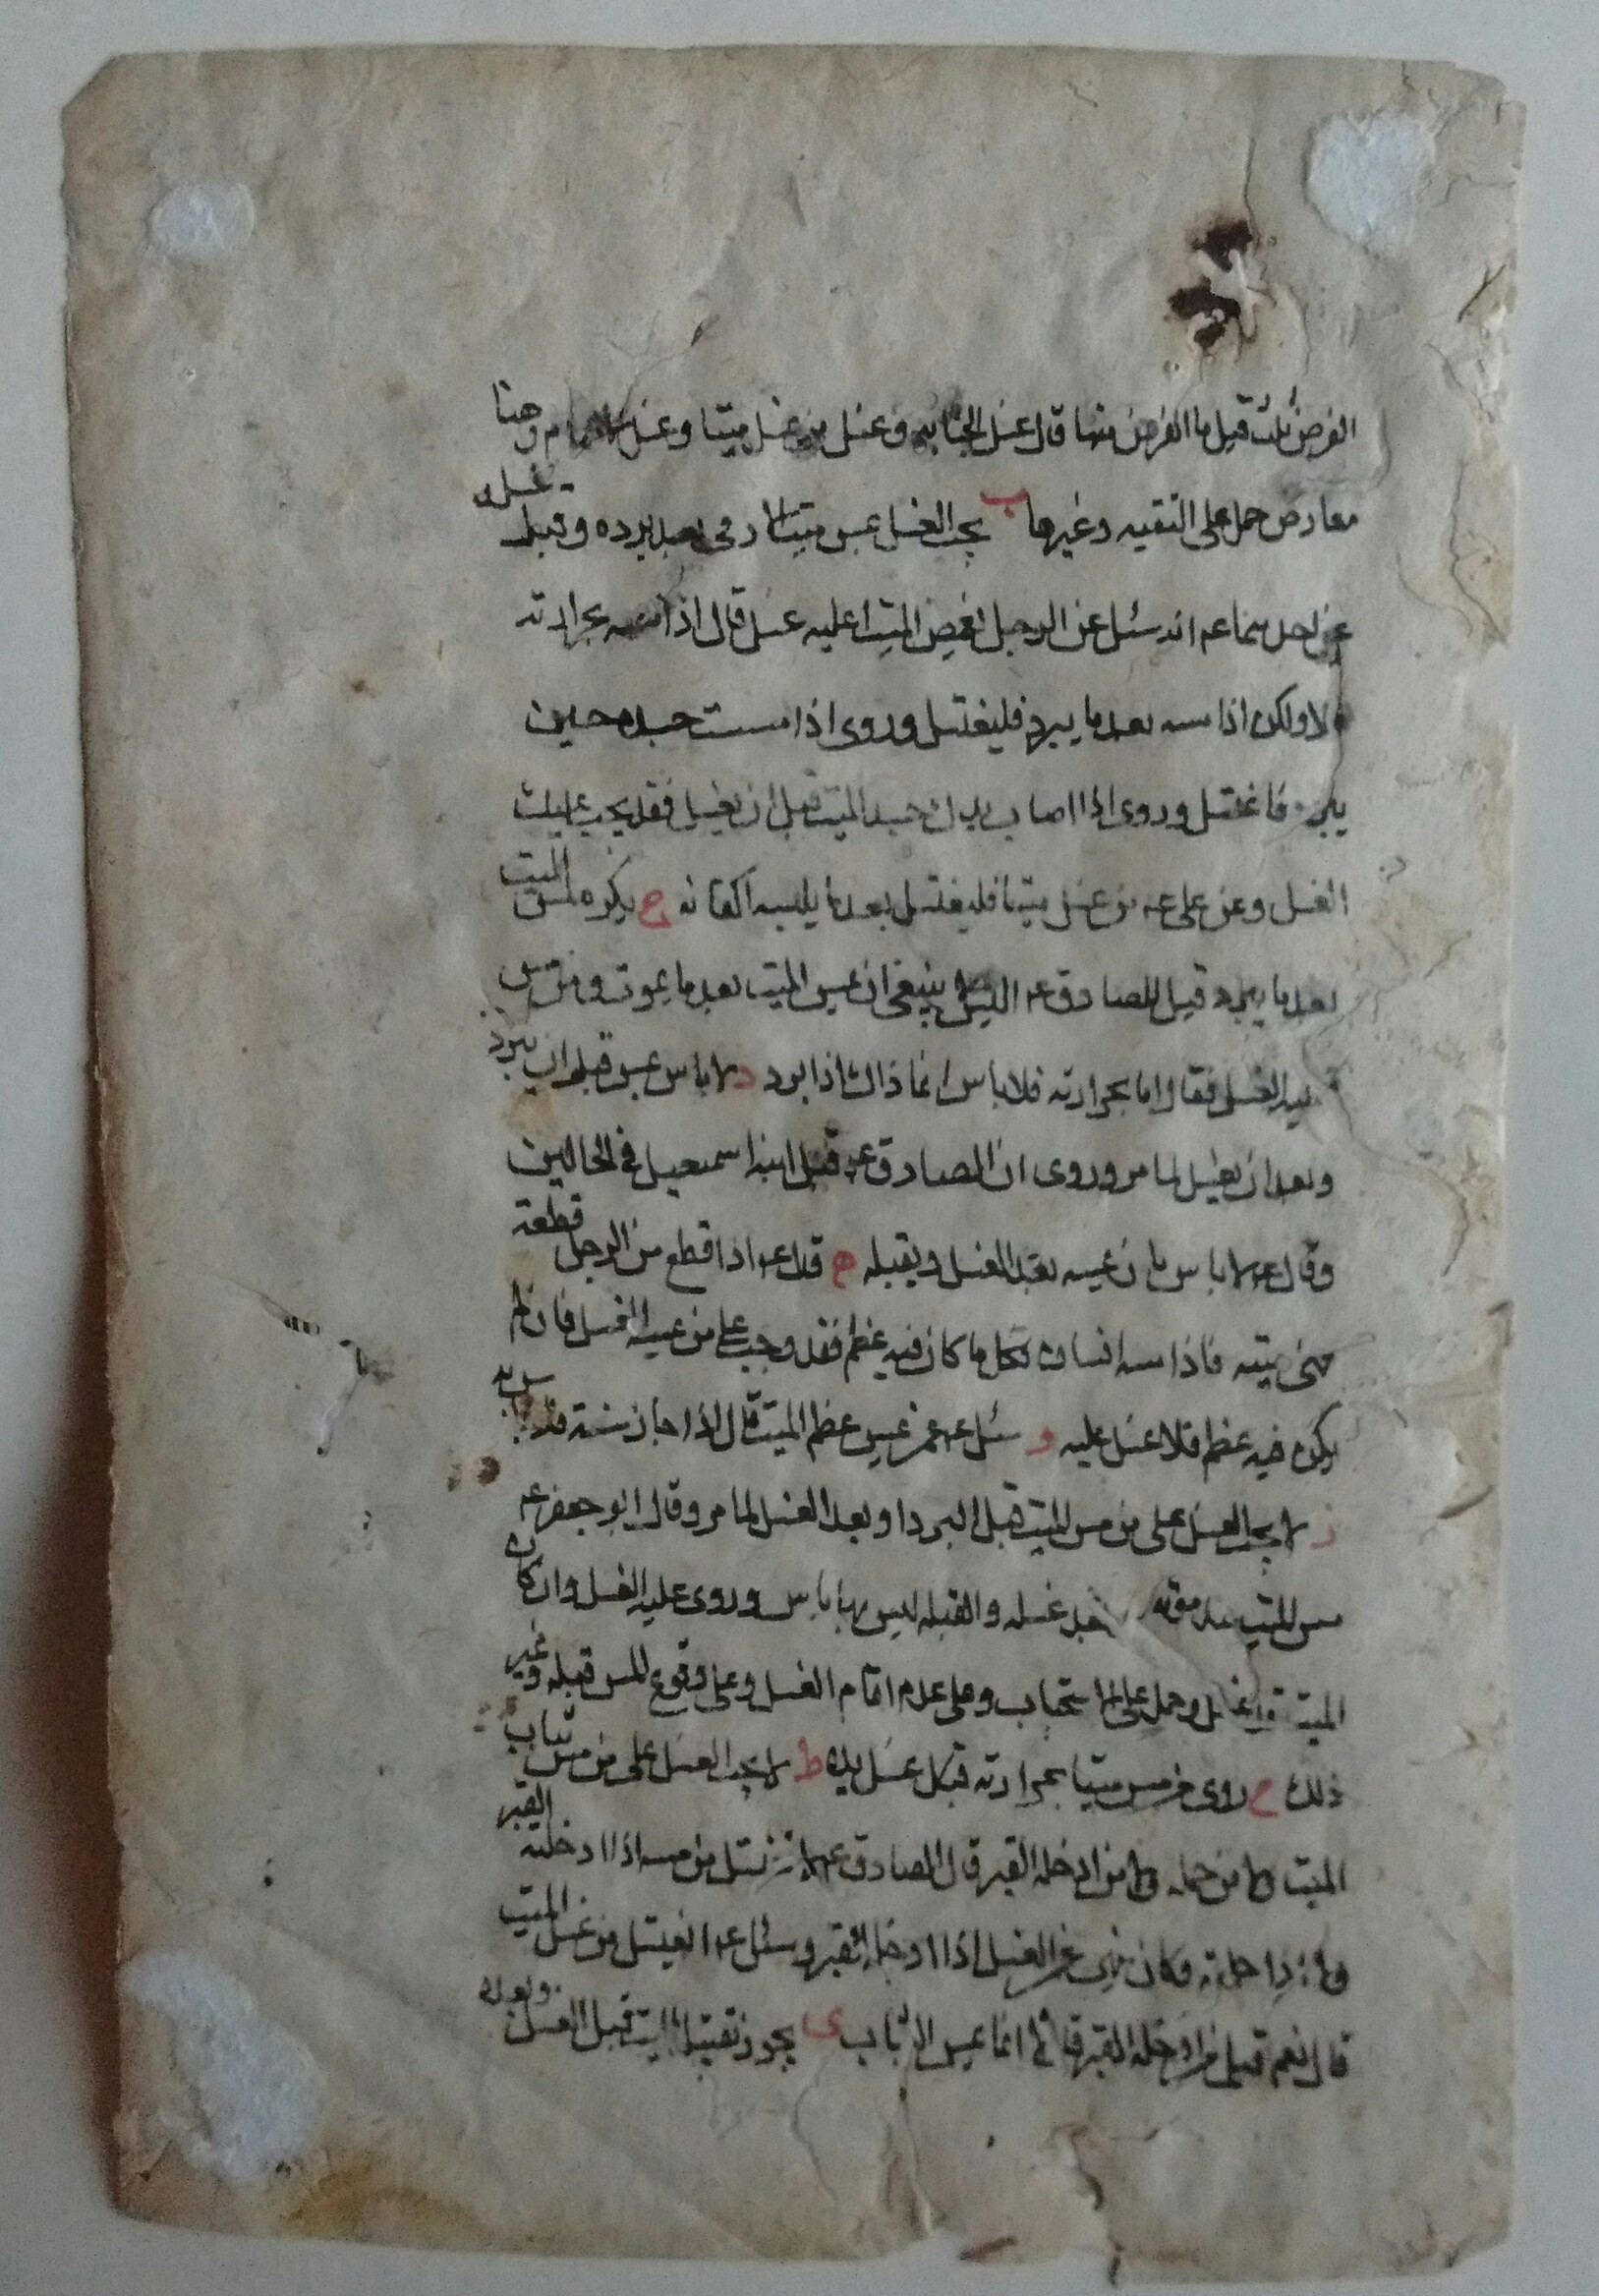 الفرض ثلث قيل ما الفرض منها قال غسل الجنابة وغسل من غسل ميتا وغسل الاحرام وهنا
معارض حمل على التقيه وغيرها ب يجب الغسل بمس ميت الادمى بعد برده وقبل غسله
عن احدهما عم انه سئل عن الرجل يغمض الميت اعليه غسل قال اذا مسه بحرارته
لا ولكن اذا مسه بعد ما يبرد فليغتسل وروى اذا مسست جسده حين
يبرد فاغتسل وروى اذا اصاب يدك جسد الميت قبل ان يغسل فقد يجب عليك
الغسل وعن على عم من غسل ميتا فليغتسل بعد ما يلبسه اكفانه ج يكره لمس الميت
بعد ما يبرد قيل للصادق عم اليس ينبغى ان يمس الميت بعد ما يموت ومن مس
فيه الغسل فقال اما بحرارته فلا باس انما ذاك اذا برد د لا باس بمس قبل ان يبرد
وبعد ان يغسل لما مر وروى ان الصادق عم قبل ابنه اسمعيل فى الحالين
وقال عم لا باس بان يمسه بعد الغسل ويقبله ه قال عم اذا قطع من الرجل قطعة
فهى ميته فاذا مسه انسان فكل ما كان فيه عظم فقد وجب على من يمسه الغسل فان لم
يكن فيه عظم فلا غسل عليه و سئل عم عن مس عظم الميت قال اذا جاز سنة فلا باس به
ز لا يجب الغسل على من مس الميت قبل البرد او بعد الغسل لما مر وقال ابو جعفر عم
مس الميت عند موته وبعد غسله والقبله ليس بها باس وروى عليه الغسل وان كان
الميت قد غسل وحمل على الاستحباب وعلى عدم اتمام الغسل وعلى وقوع المس قبله وغير
ذلك ح روى من مس ميتا بحرارته قبل غسل يده ط لا يجب الغسل على من مس ثياب
الميت ولا من حمله ولا من ادخله القبر قال الصادق عم لا تغتسل من مسه اذا ادخلته القبر
ولا اذا حملته وكان فيمن الغسل اذا ادخله القبر وسئل عم ايغتسل من غسل الميت
قال نعم قيل من ادخله القبر قال لا انما يمس الثياب ى يجوز تقبيل الميت قبل الغسل وبعده